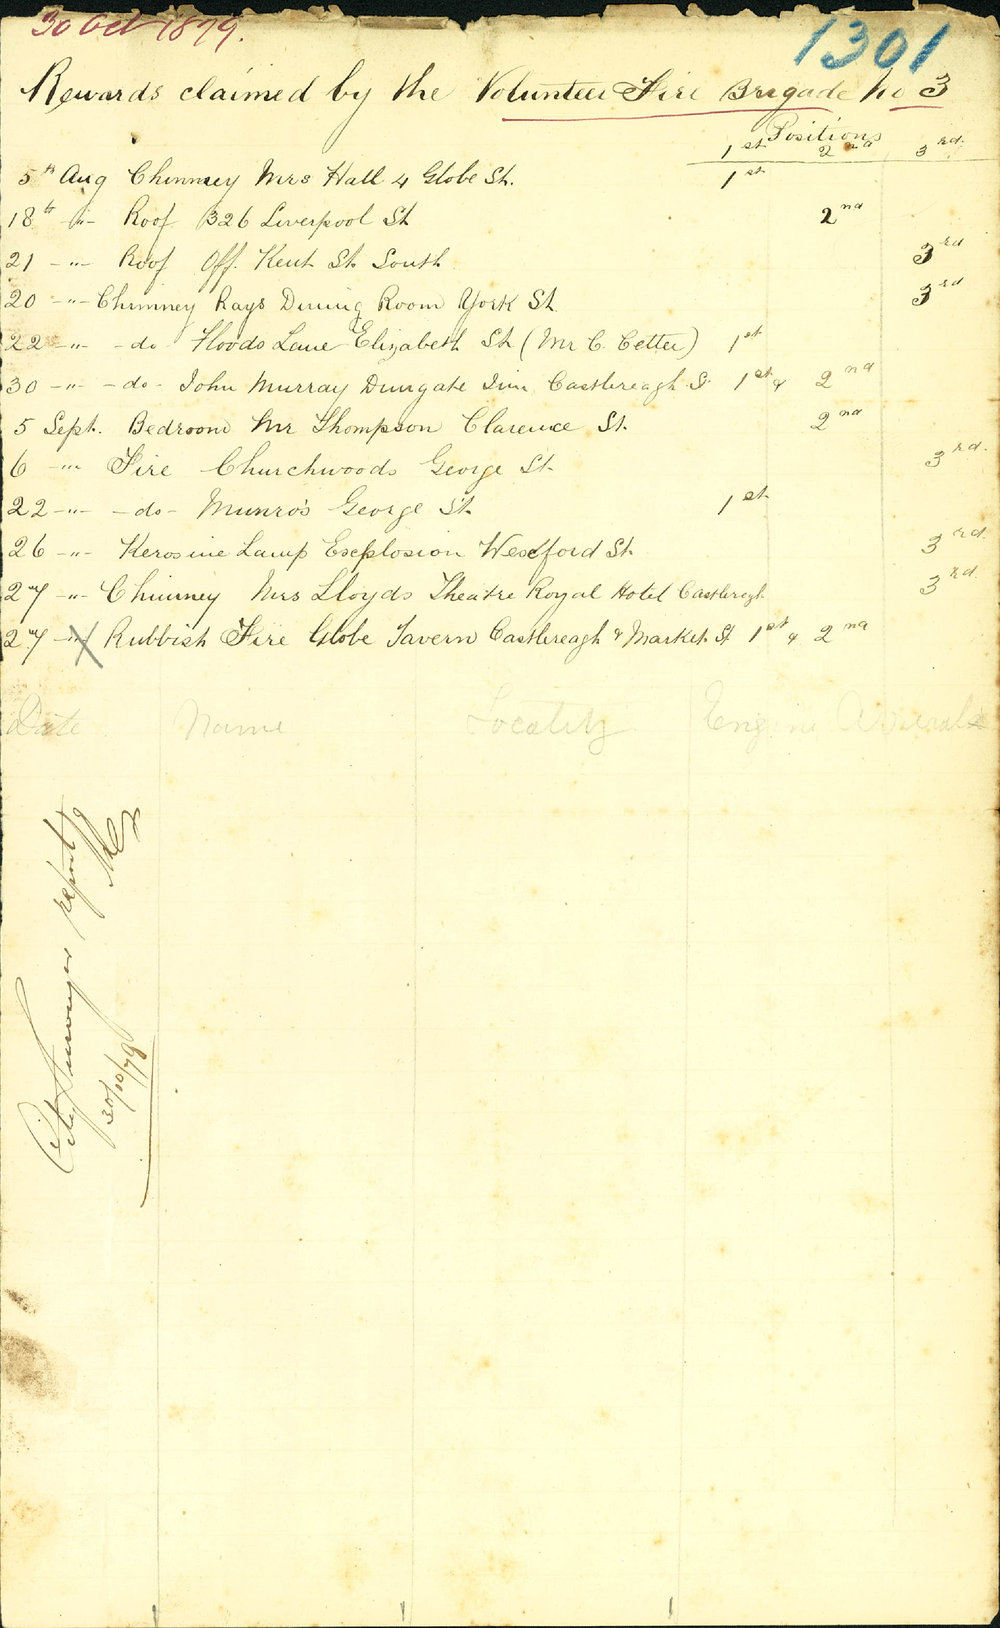 30 Oct 1879.
1301
Rewards claimed by the Volunteer Fire Brigade No 3
Positions
1st 2nd 3rd
5th Aug Chimney Mrs Hall 4 Globe St. 1st
18th -"- Roof 326 Liverpool St 2nd
21 -"- Roof Off Kent St South 3rd
20 -"- Chimney Rays Dining Room York St 3rd
22 -"- -do- Hoods Lane Elizabeth St (Mr C. Cetter) 1st
30 -"- -do- John Murray Dungate Inn Castlereagh St 1st & 2nd
5 Sept. Bedroom Mr Thompson Clarence St. 2nd
6 -"- Fire Churchwoods George St. 3rd
22 -"- -do- Munro's George St. 1st
26 -"- Kerosine Lamp Explosion Wexford St. 3rd
27 -"- Chimney Mrs Lloyds Theatre Royal Hotel Castlereagh 3rd
27 -"- X Rubbish Fire Globe Tavern Castlereagh & Market St 1st & 2nd
Date Name Locality Engine Arrivals
City Surveyor report
30/10/79